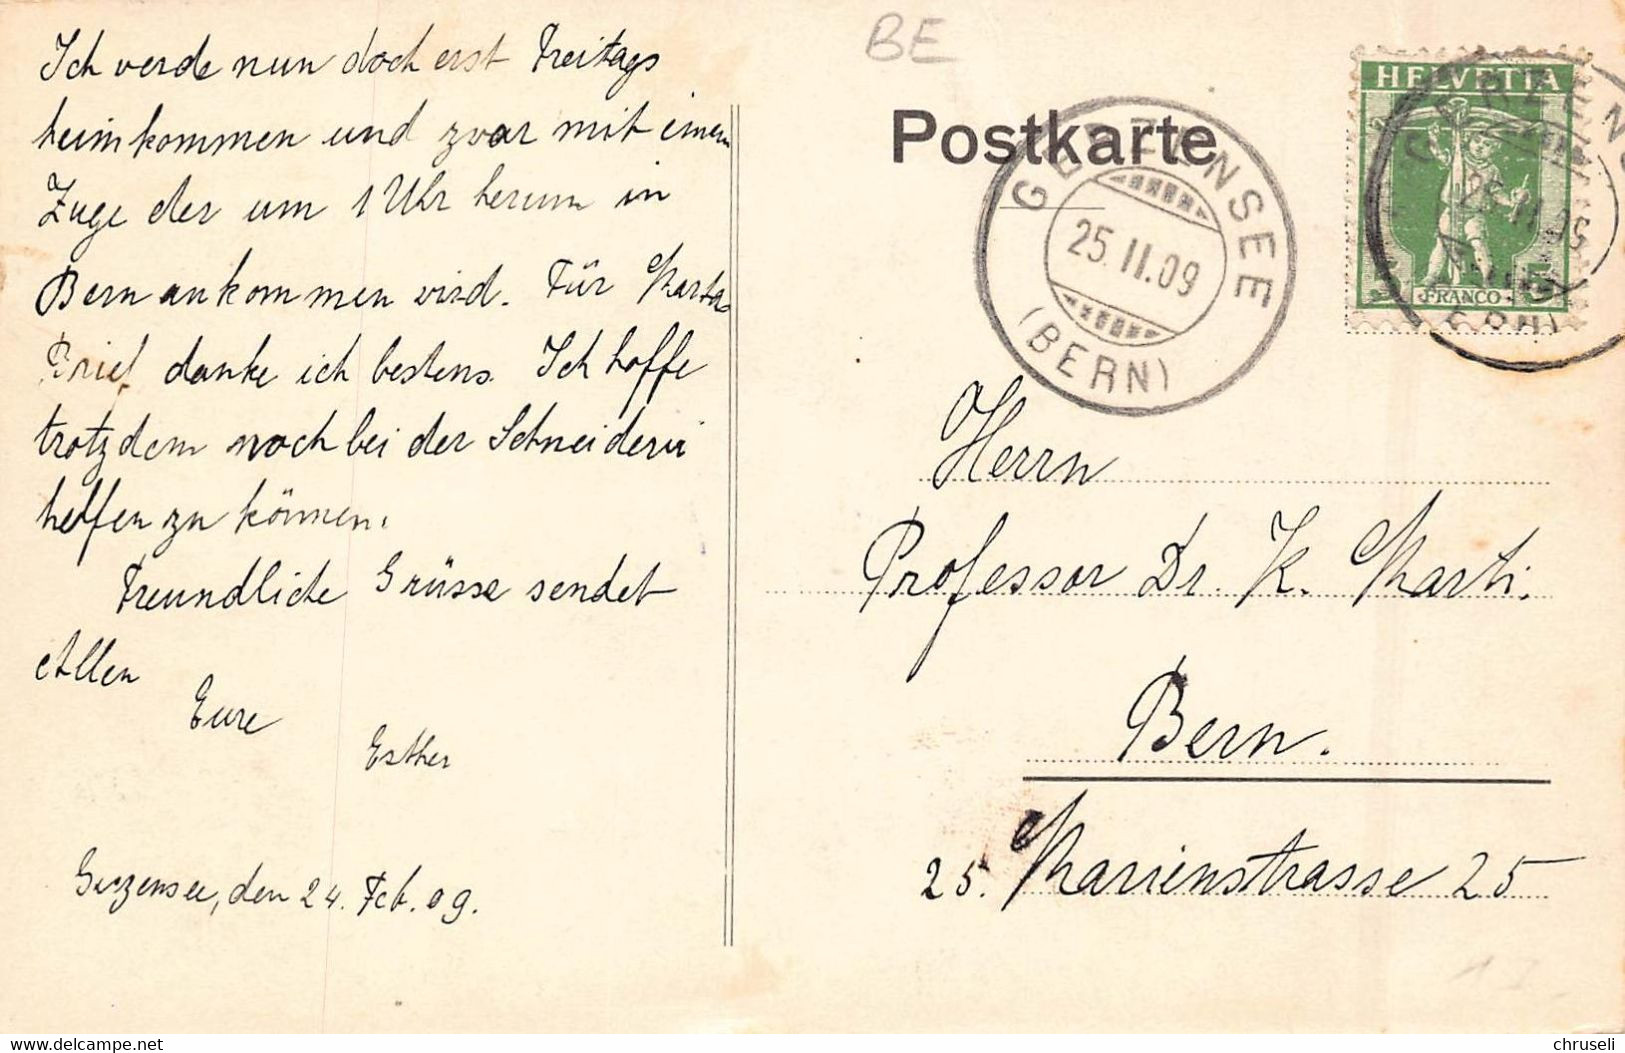 Ich werde nun doch erst Freitags
heimkommen und zwar mit einem
Zuge der um 1 Uhr herum in
Bern ankommen wird. Für Martas
Brief danke ich bestens. Ich hoffe
trotzdem noch bei der Schneiderei
helfen zu können.
Freundliche Grüsse sendet
Allen
Eure
Esther
Gerzensee, den 24. Feb. 09.
BE
Postkarte
GERZENSEE
25.II.09
(BERN)
HELVETIA
FRANCO 5
Herrn
Professor Dr. K. Marti.
Bern.
25. Marienstrasse 25
delcampe.net
chruseli